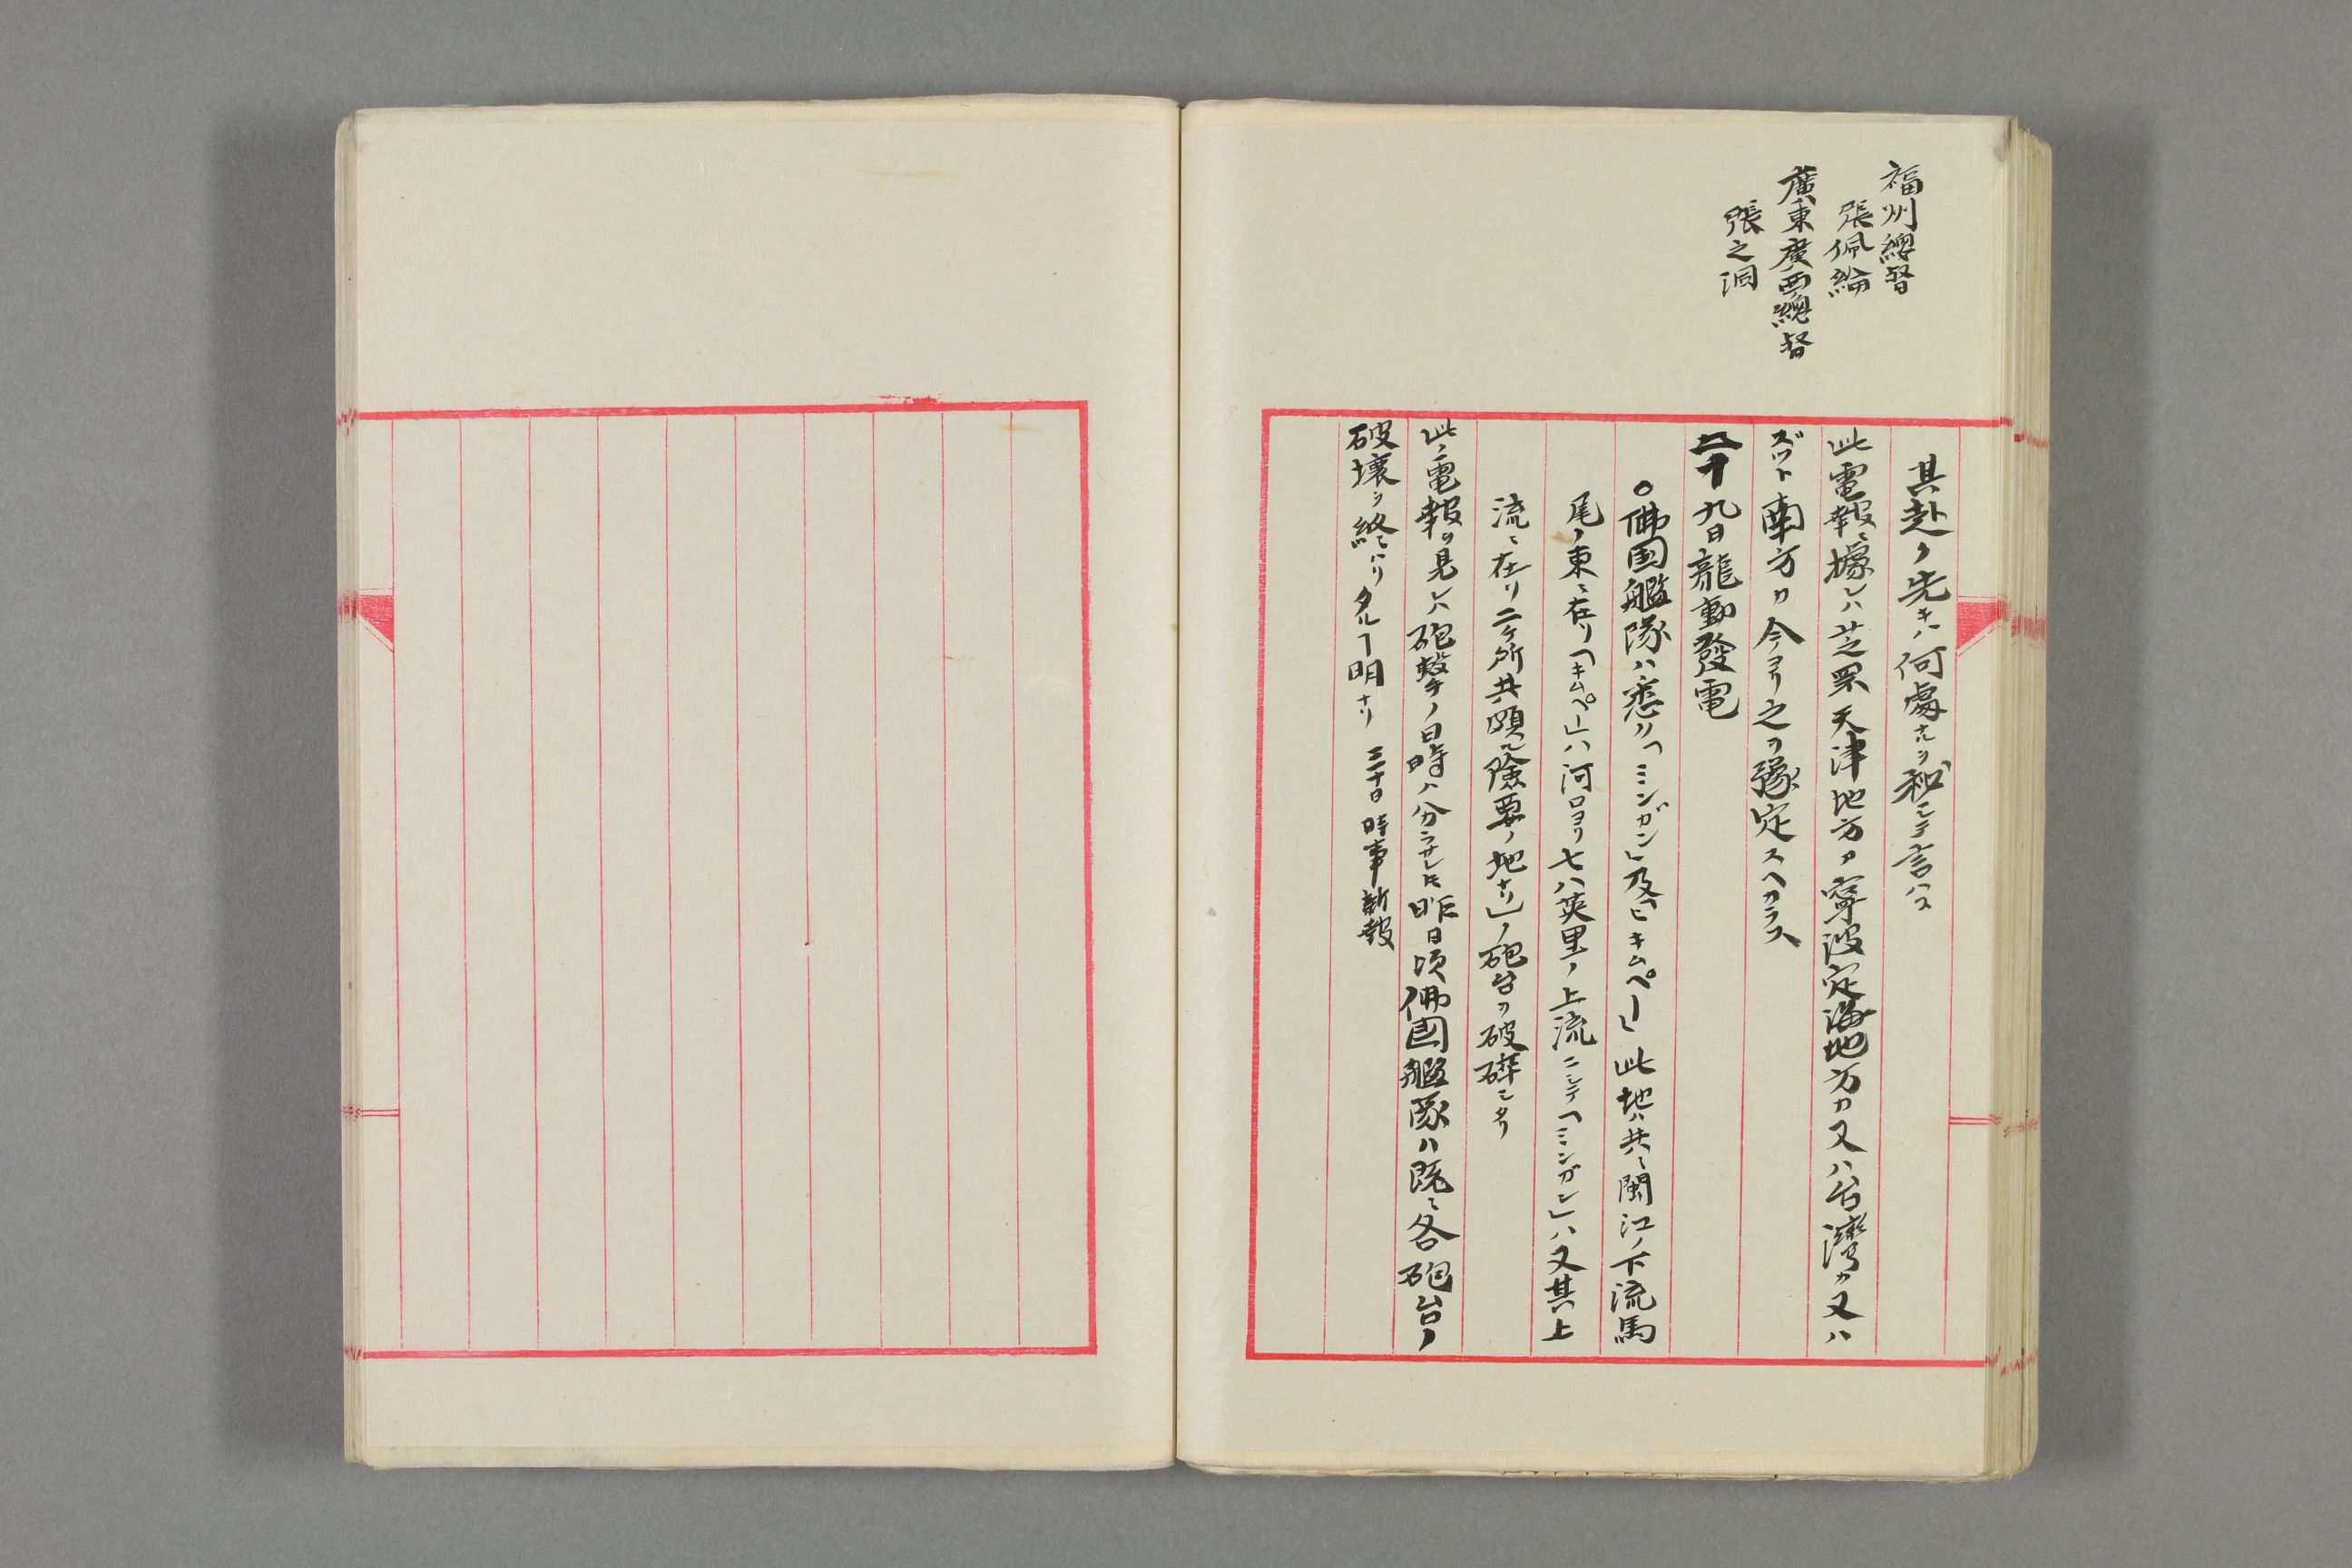 福州總督
張佩綸
廣東廣西總督
張之洞
其赴ク先キハ何處ナルヲ秘シテ言ハス
此電報ニ據レハ芝罘天津地方カ寧波定海地方カ又ハ台灣カ又ハ
ズツト南方カ今ヨリ之ヲ豫定スヘカラス
二十九日龍動發電
○佛国艦隊ハ悉ク「ミンガン」及ビ「キムペー」此地ハ共ニ閩江ノ下流馬
尾ノ東ニ在リ「キムペ」ハ河口ヨリ七八英里ノ上流ニシテ「ミンガン」ハ又其上
流ニ在リ二ケ所共頗ル險要ノ地ナリ」ノ砲台ヲ破碎シタリ
此ノ電報ヲ見レハ砲撃ノ日時ハ分ラサレ𪜈昨日頃佛國艦隊ハ既ニ各砲台ノ
破壊ヲ終ハリタルヿ明ナリ 三十日時事新報